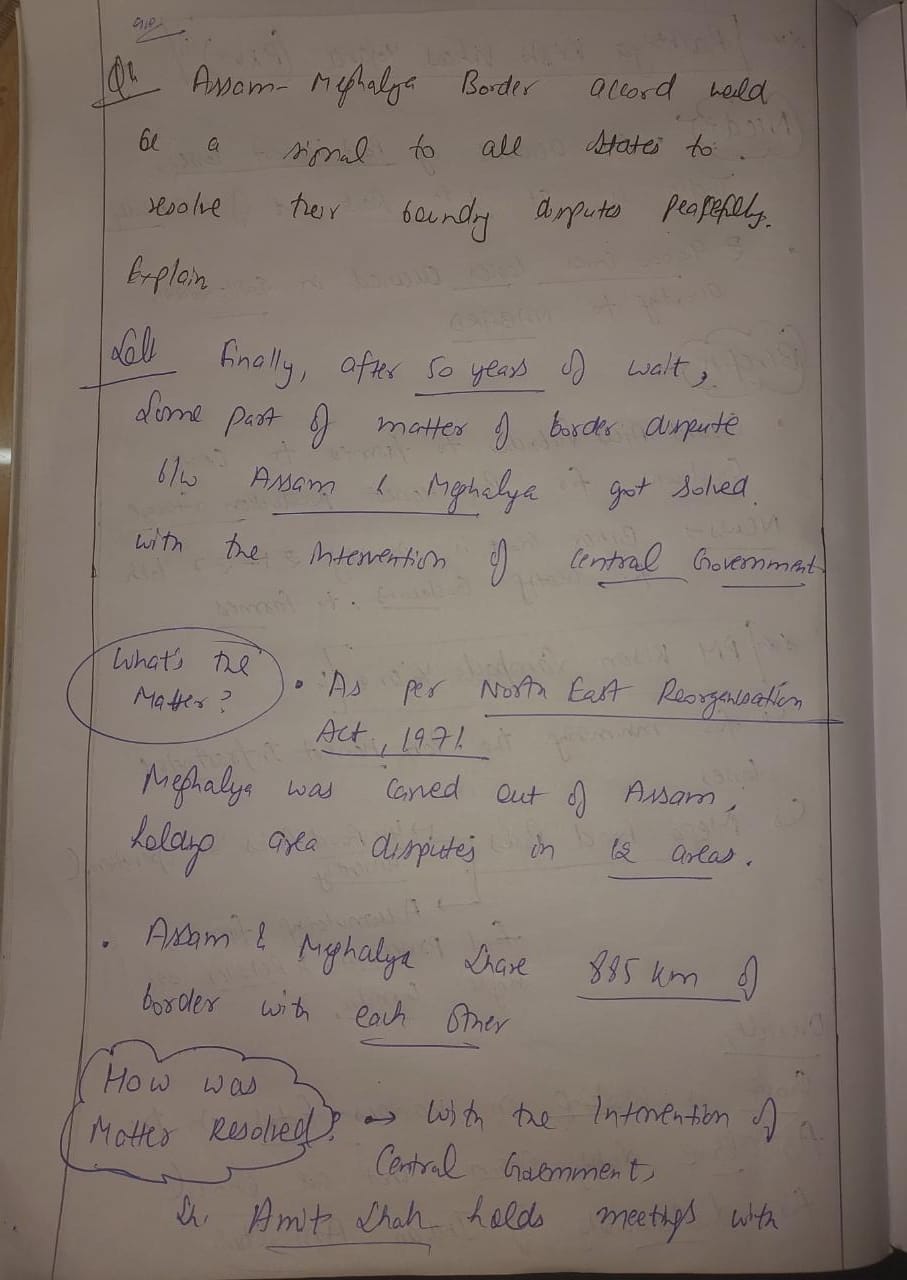 Qu Assam- Meghalya Border accord would
be a signal to all states to
resolve their boundry disputes peacefully.
Explain
Sol Finally, after 50 years of wait,
Some part of matter of border dispute
b/w Assam & Meghalya got solved
with the Intervention of Central Government
What's the
Matter?
• As per North East Reorganisation
Act, 1971
Meghalya was carved out of Assam,
holding area disputes in 12 areas.
• Assam & Meghalya Share 885 km of
border with each other
How was
Matter Resolved? → With the Intervention of
Central Government,
Sh. Amit Shah holds meetings with